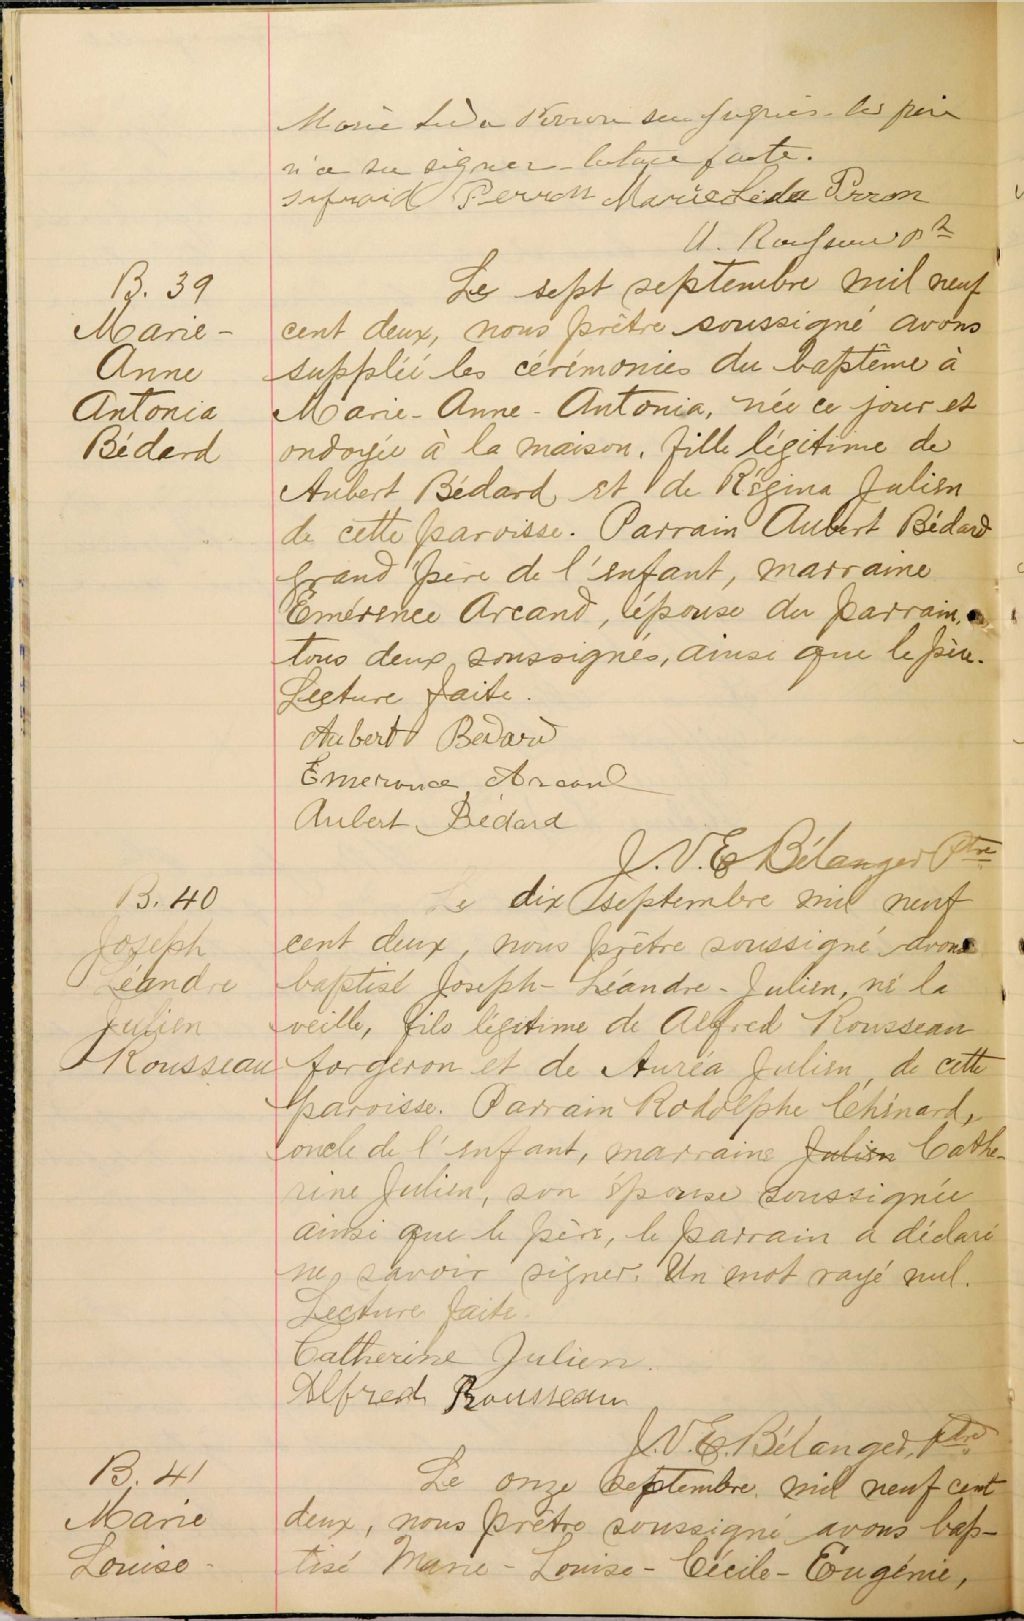 Marie Léda Perron soussignés. Le père
n'a su signer. Lecture faite.
Sifroid Perron Marie Léda Perron
U. Rousseau ptre
B. 39
Marie-
Anne
Antonia
Bédard
Le sept septembre mil neuf
cent deux, nous prêtre soussigné avons
suppléé les cérémonies du baptême à
Marie-Anne-Antonia, née ce jour et
ondoyée à la maison, fille légitime de
Aubert Bédard et de Régina Julien
de cette paroisse. Parrain Aubert Bédard
grand père de l'enfant, marraine
Emérence Arcand, épouse du parrain,
tous deux soussignés, ainsi que le père.
Lecture faite.
Aubert Bedard
Emerence Arcand
Aubert Bédard
J. V. E. Bélanger Ptre
B. 40
Joseph
Léandre
Julien
Rousseau
Le dix septembre mil neuf
cent deux, nous prêtre soussigné avons
baptisé Joseph-Léandre-Julien, né la
veille, fils légitime de Alfred Rousseau
forgeron et de Auréa Julien, de cette
paroisse. Parrain Rodolphe Chénard,
oncle de l'enfant, marraine Julien Cathe-
rine Julien, son épouse soussignée
ainsi que le père, le parrain a déclaré
ne savoir signer. Un mot rayé nul.
Lecture faite.
Catherine Julien.
Alfred Rousseau
J. V. E. Bélanger, Ptre
B. 41
Marie
Louise-
Le onze septembre mil neuf cent
deux, nous prêtre soussigné avons bap-
tisé Marie-Louise-Cécile-Eugénie,